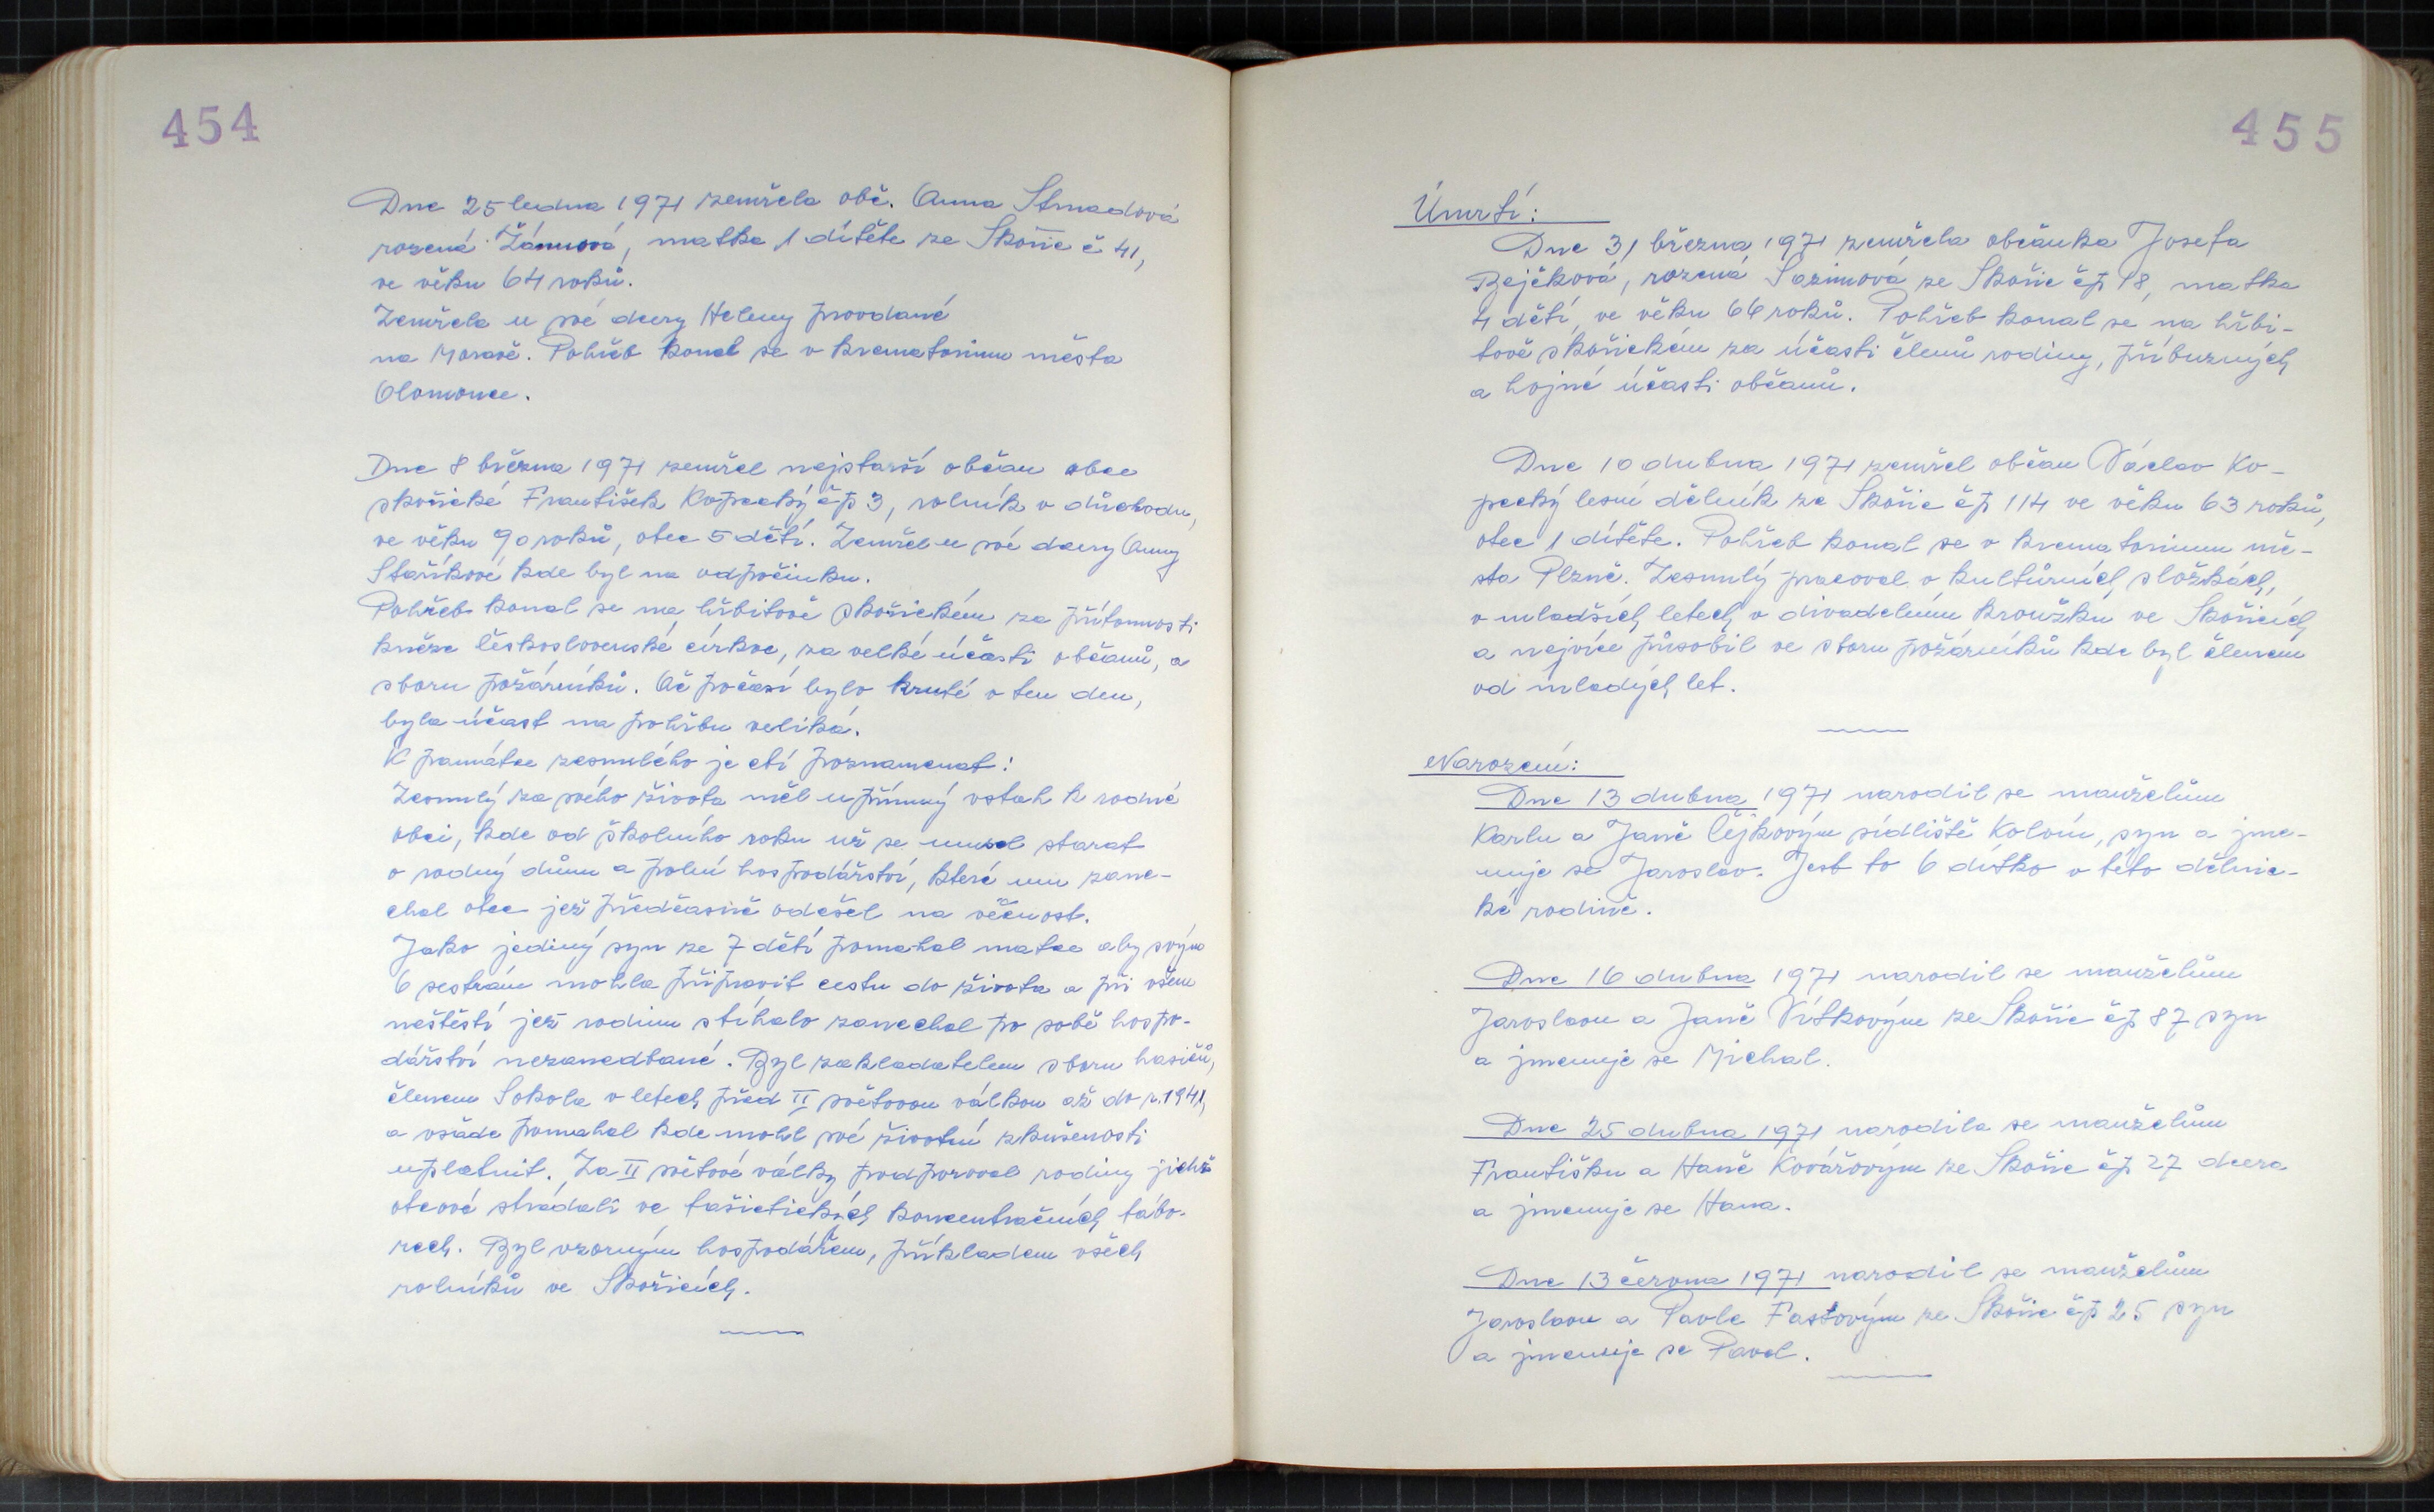 454
Dne 25 ledna 1971 zemřela obč. Anna Strnadová
rozená Žánnová, matka 1 dítěte ze Skořic č 41,
ve věku 64 roků.
Zemřela u své dcery Heleny provdané
na Moravě. Pohřeb konal se v krematorium města
Olomouce.
Dne 8 března 1971 zemřel nejstarší občan obce
skořické František Kopecký čp 3, rolník v důchodu,
ve věku 90 roků, otec 5 dětí. Zemřel u své dcery Anny
Staříkové kde byl na odpočinku.
Pohřeb konal se na hřbitově skořickém za přítomnosti
kněze československé církve, za velké účasti občanů, a
sboru požárníků. Ač počasí bylo kruté v ten den,
byla účast na pohřbu veliká.
K památce zesnulého je ctí poznamenat:
Zesnulý za svého života měl upřímný vstah k rodné
obci, kde od školního roku už se musel starat
o rodný dům a polní hospodářství, které mu zane-
chal otec jež předčasně odešel na věčnost.
Jako jediný syn ze 7 dětí pomahal matce aby svým
6 sestrám mohla připravit cestu do života a při všem
neštěstí jež rodinu stíhalo zanechal po sobě hospo-
dářství nezanedbané. Byl zakladatelem sboru hasičů,
členem Sokola v létech před II světovou válkou až do r. 1941,
a všade pomahal kde mohl své životní zkušenosti
uplatnit. Za II světové války podporoval rodiny jichž
otcové strádali ve fašistických koncentračních tábo-
rech. Byl vzorným hospodářem, příkladem všech
rolníků ve Skořicích.
455
Úmrtí:
Dne 31 března 1971 zemřela občanka Josefa
Bejčková, rozená Sazimová ze Skořic čp 18, matka
4 dětí, ve věku 66 roků. Pohřeb konal se na hřbi-
tově skořickém za účasti členů rodiny, příbuzných
a hojné účasti občanů.
Dne 10 dubna 1971 zemřel občan Václav Ko-
pecký lesní dělník ze Skořic čp 114 ve věku 63 roků,
otec 1 dítěte. Pohřeb konal se v krematorium mě-
sta Plzně. Zesnulý pracoval v kultůrních složkách,
v mladších letech v divadelním kroužku ve Skořicích
a nejvíce působil ve sboru požárníků kde byl členem
od mladých let.
Narození:
Dne 13 dubna 1971 narodil se manželům
Karlu a Janě Čejkovým sídliště Kolvín, syn a jme-
nuje se Jaroslav. Jest to 6 dítko v této dělnic-
ké rodině.
Dne 16 dubna 1971 narodil se manželům
Jaroslavu a Janě Vítkovým ze Skořic čp 87 syn
a jmenuje se Michal.
Dne 25 dubna 1971 narodila se manželům
Františku a Haně Kovářovým ze Skořic čp 27 dcera
a jmenuje se Hana.
Dne 13 června 1971 narodil se manželům
Jaroslavu a Pavle Fastovým ze Skořic čp 25 syn
a jmenuje se Pavel.